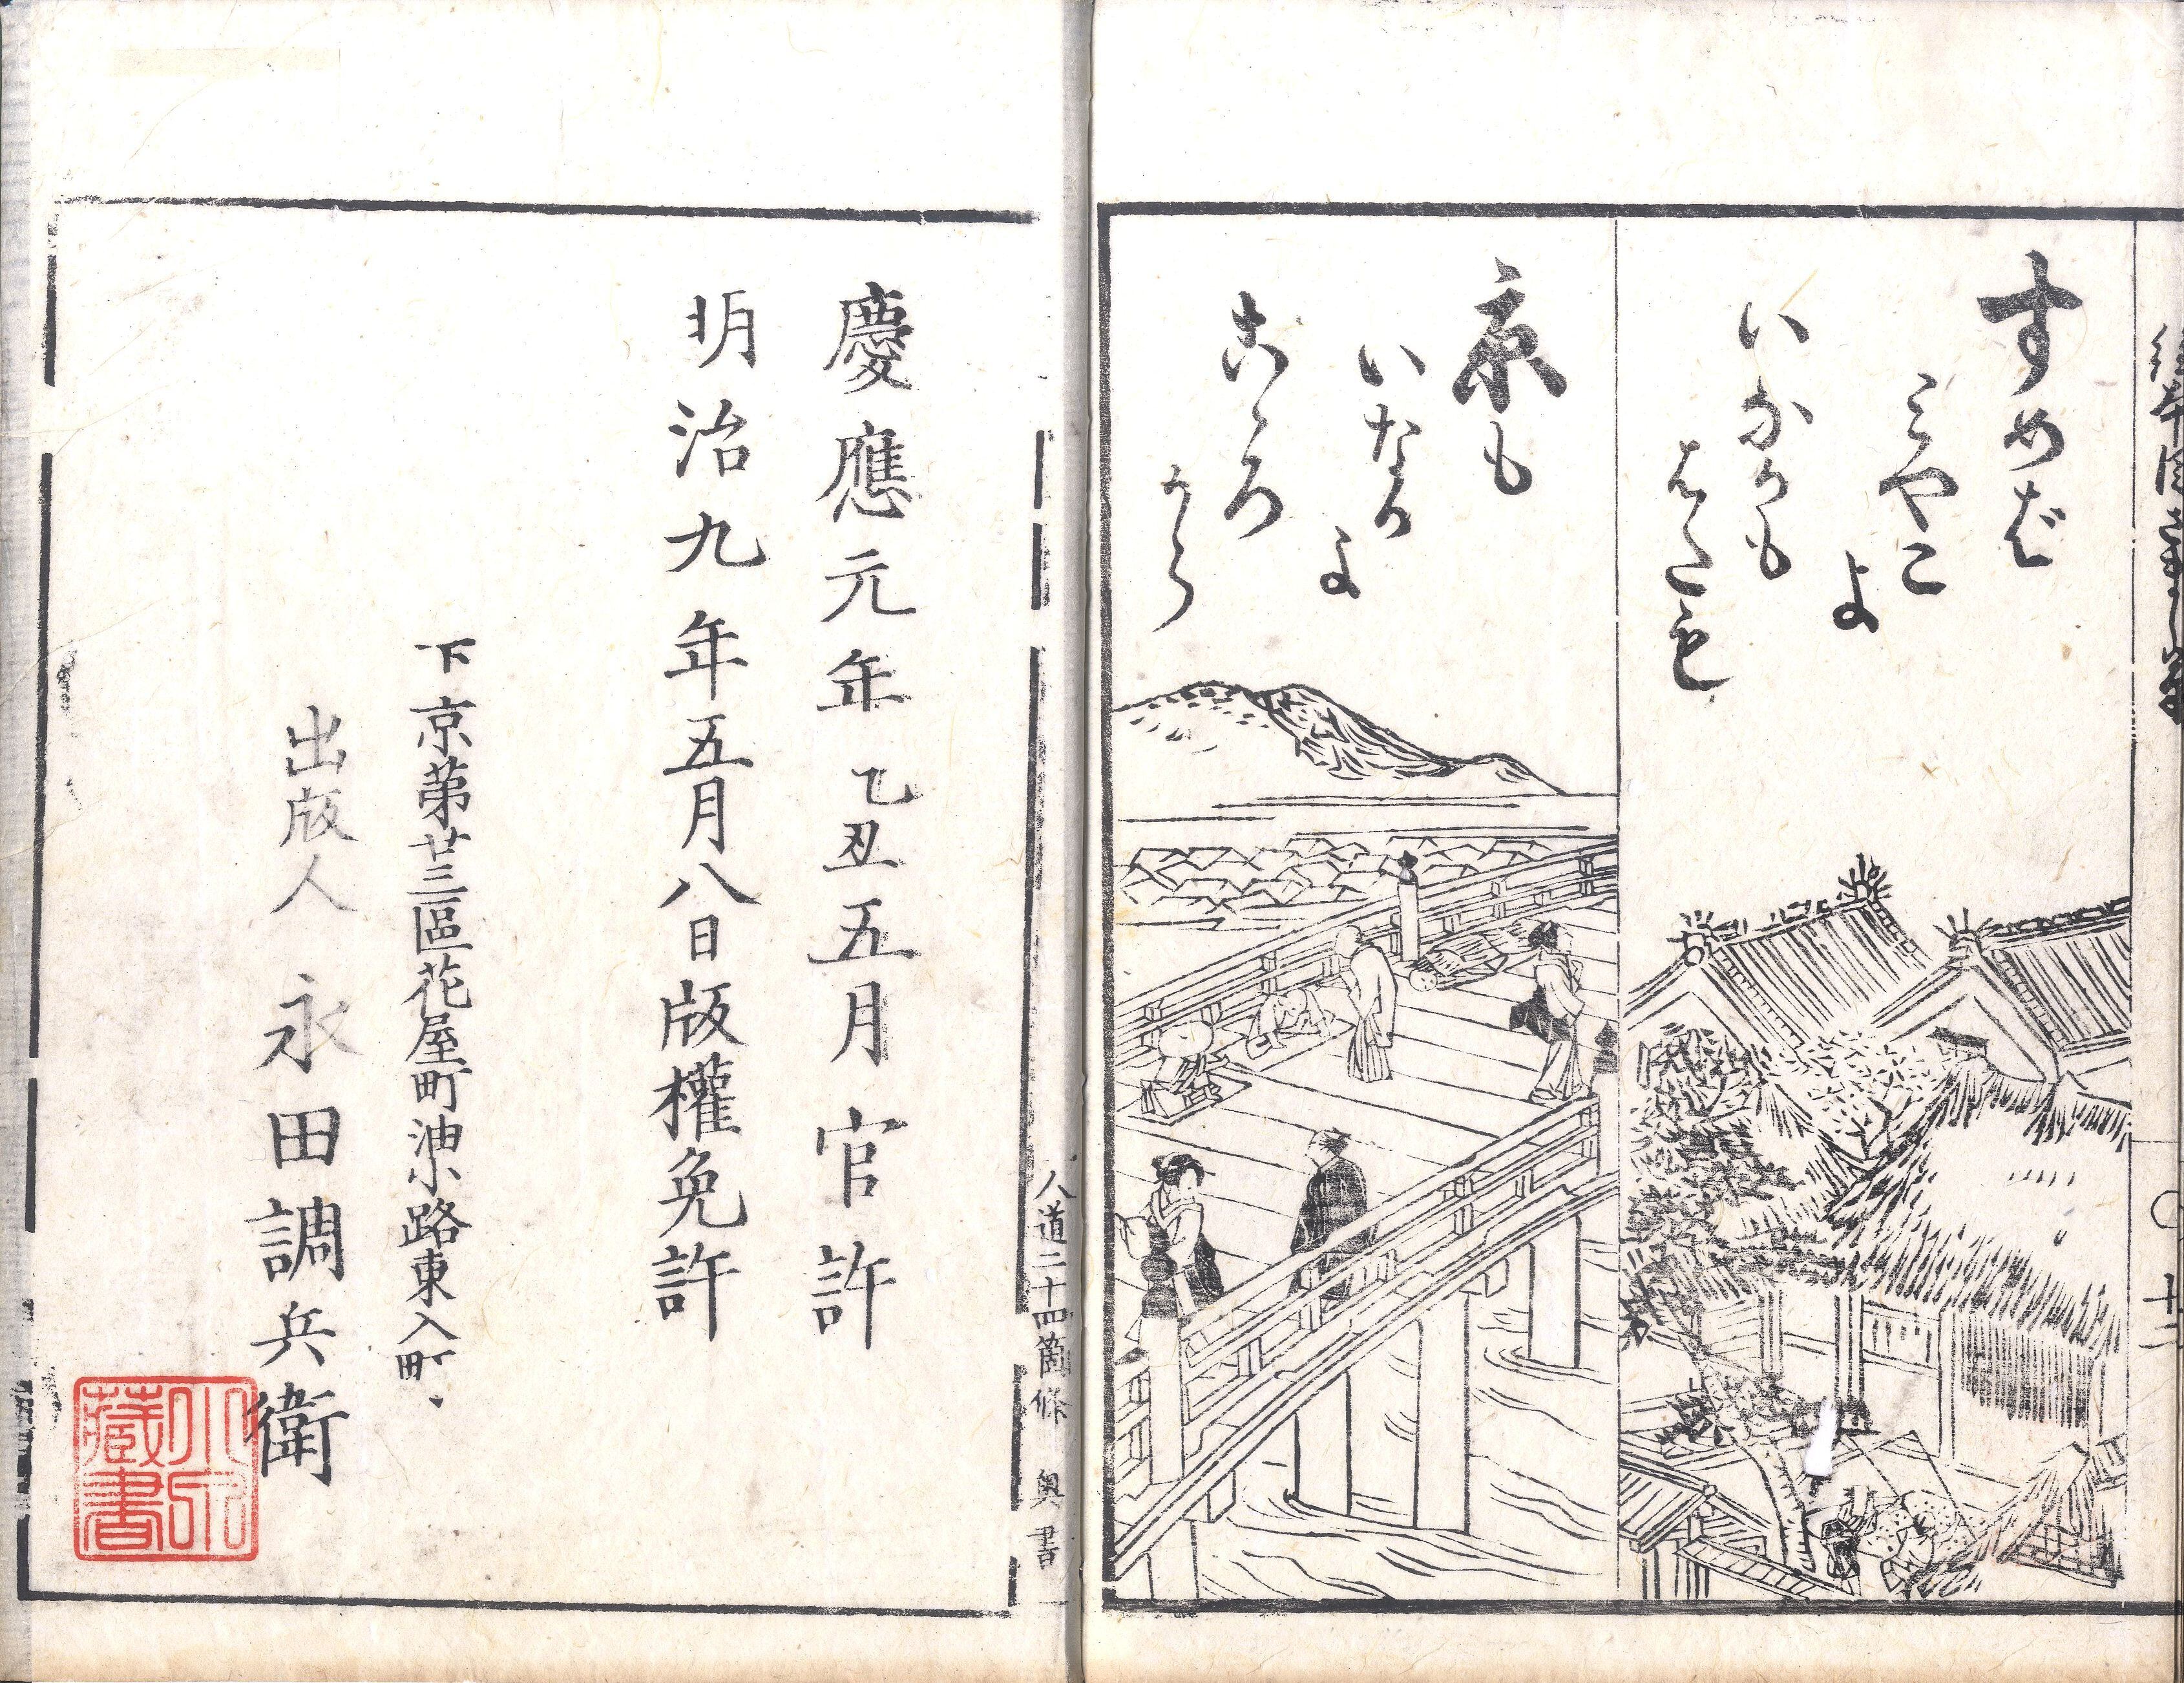 十二
すめば
みやこ
よ
いなかも
京も
いなか
よ
こゝろ
から
人道二十四箇條 奥書 一
慶應元年乙丑五月官許
明治九年五月八日版權免許
下京第廿三區花屋町油小路東入町
出版人 永田調兵衛
藏書